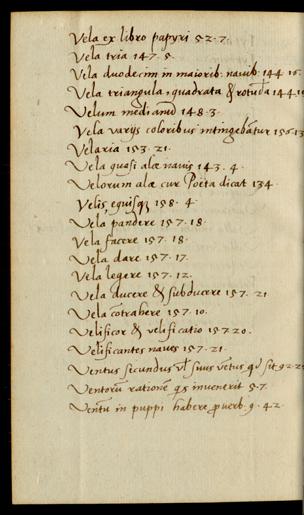 Vela ex libro papyri 52.7.
Vela tria 147.5.
Vela duodecim in maiorib. nauib. 144.16.
Vela triangula, quadrata & rotūda 144.1
Velum medianū 148.3.
Vela varijs coloribus intingebātur 156.13
Velaria 153.21.
Vela quasi alæ nauis 143.4.
Velorum alæ cur Poëta dicat 134.
Velis, equisq; 158.4.
Vela pandere 157.18.
Vela facere 157.18.
Vela dare 157.17.
Vela legere 157.12.
Vela ducere & subducere 157.21
Vela cōtrahere 157.10.
Velificor & velificatio 157.20.
Velificantes naues 157.21.
Ventus secundus vl' suus vētus qd' sit 92.2
Ventorū rationē qs inuenerit 57.
Ventū in puppi habere prouerb. 9.42.